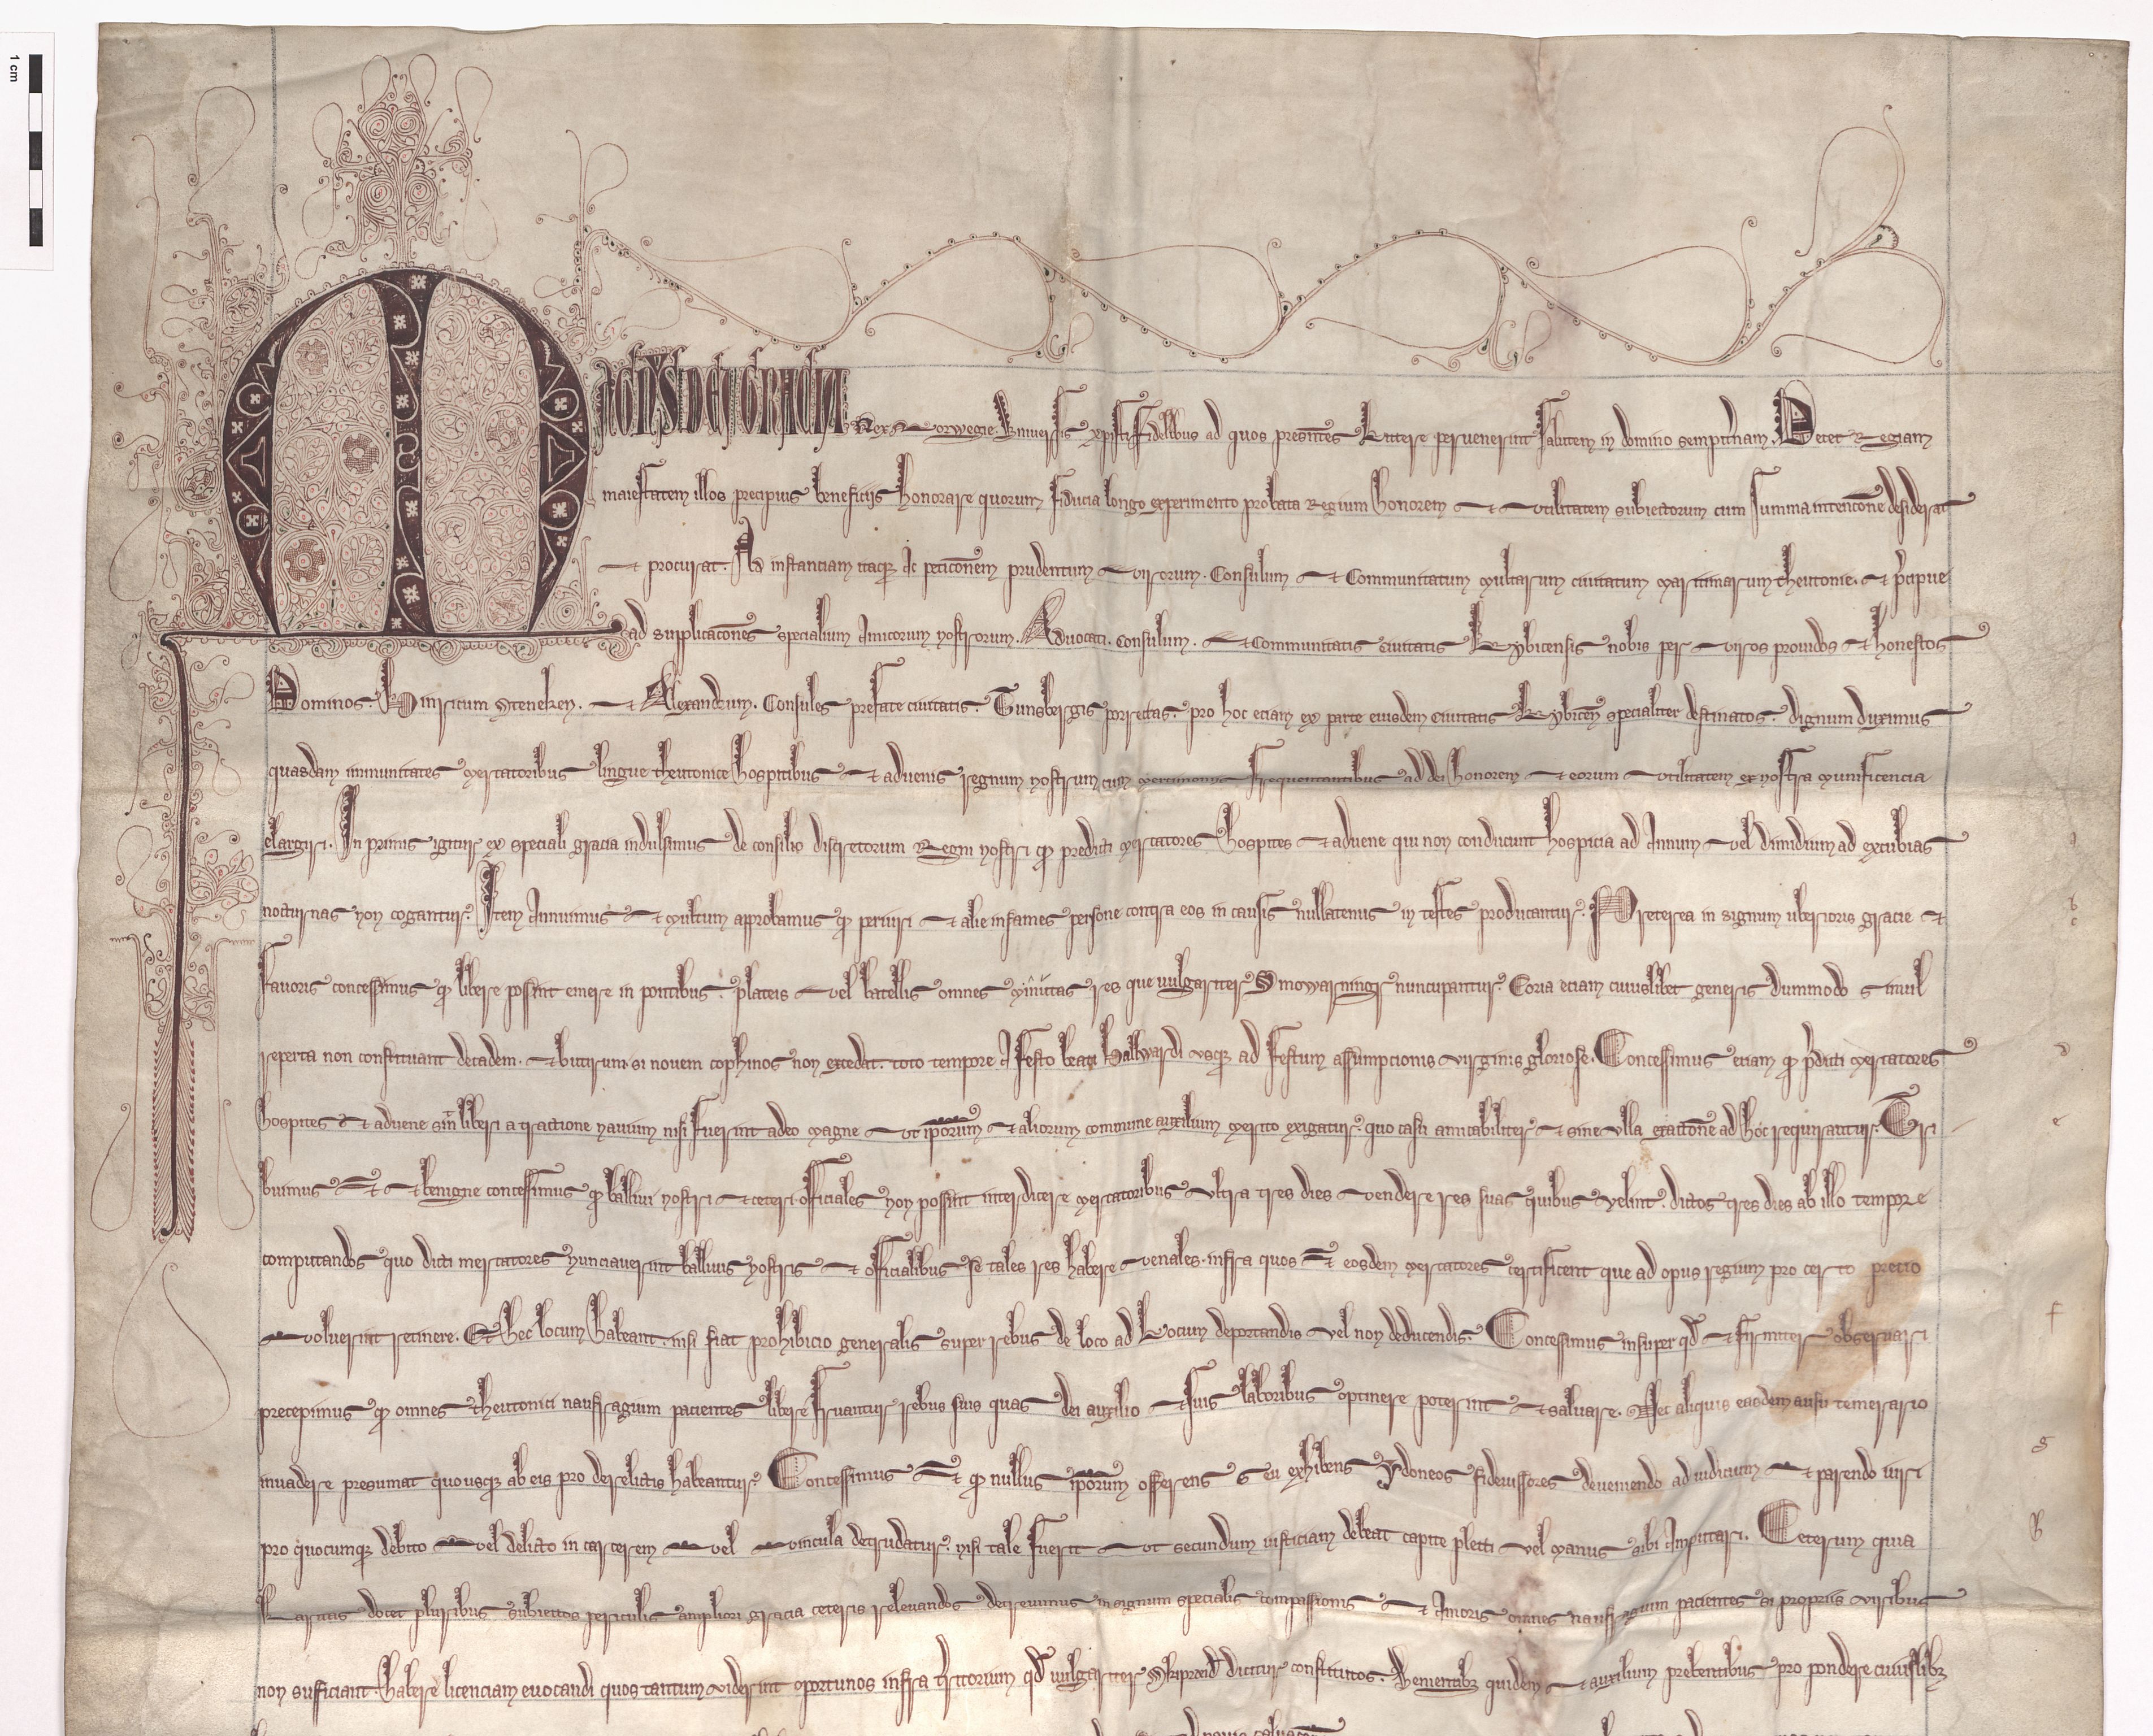 1 cm
MAGNUS DEI GRACIA Rex Norwegie. Vniuersis xpisti Fidelibus ad quos presentes Littere peruenerint Salutem in domino sempiternam. Decet Regiam
maiestatem illos precipuis beneficijs honorare quorum Fiducia longo experimento probata Regium honorem et vtilitatem subiectorum cum Summa intencione desiderat
et procurat. Ad instanciam itaque Ac peticionem prudentum virorum. Consulum et Communitatum Multarum ciuitatum Maritimarum theutonie. et precipue
ad supplicaciones specialium Amicorum Nostrorum. Aduocati. Consulum. et Communitatis ciuitatis Lybicensis nobis per viros prouidos et honestos
Dominos. Hinricum Steneken. et Alexandrum. Consules prefate ciuitatis. Tunsbergis porrectas. pro hoc eciam ex parte eiusdem Ciuitatis Lybicen specialiter destinatos. dignum duximus
quasdam immunitates Mercatoribus lingue theutonice hospitibus et aduenis regnum Nostrum cum Mercimoniis Frequentantibus ad dei honorem et eorum vtilitatem ex Nostra Munificencia
elargiri. In primis igitur ex speciali gracia indulsimus de consilio discretorum Regni Nostri quod predicti Mercatores hospites et aduene qui non conducunt hospicia ad Annum vel dimidium ad excubias
nocturnas Non cogantur. Item Annuimus et Multum approbamus quod periuri et alie infames persone contra eos in causis nullatenus in testes producantur. Preterea in signum uberioris gracie et
Fauoris concessimus quod libere possint emere in pontibus. plateis vel batellis omnes Minutas res que uulgariter Smowarningr nuncupantur. Coria eciam cuiuslibet generis dummodo simul
reperta non constituant decadem. et butirum si nouem cophinos non excedat. toto tempore A Festo beati Hallwardi vsque ad Festum assumpcionis virginis gloriose. Concessimus eciam quod predicti Mercatores
hospites et aduene sint liberi a tractione Nauium nisi Fuerint adeo Magne vt ipsorum et aliorum commune auxilium Merito exigatur. quo casu amicabiliter et sine vlla exactione ad hoc requirantur. Tri
buimus et benigne concessimus quod balliui Nostri et ceteri officiales Non possint interdicere Mercatoribus Vltra tres dies vendere res suas quibus Velint. dictos tres dies ab illo tempore
computandos quo dicti mercatores Nunciauerint balliuis Nostris et officialibus se tales res habere venales. infra quos et eosdem Mercatores certificent que ad opus regium pro certo precio
voluerint retinere. Et hec locum habeant. nisi fiat prohibicio generalis super rebus de loco ad Locum deportandis vel non deducendis. Concessimus insuper quod et firmiter obseruari
precepimus quod omnes theutonici naufragium pacientes libere Fruantur rebus suis quas dei auxilio et Suis laboribus optinere poterint et saluare. Nec aliquis easdem ausu temerario
inuadere presumat quousque ab eis pro derelictis habeantur. Concessimus et quod nullus ipsorum offerens seu exhibens Ydoneos fideiussores de veniendo ad iudicium et parendo iuri
pro quocumque debito vel delicto in carcerem vel vincula detrudatur. Nisi tale Fuerit vt secundum iusticiam debeat capite plecti vel Manus sibi Amputari. Ceterum quia
Karitas docet pluribus subiectos periculis ampliori gracia ceteris releuandos decreuimus in signum specialis compassionis et Amoris omnes naufragium pacientes si propriis viribus
non sufficiant. habere licenciam euocandi quos tantum viderint oportunos infra territorium quod uulgariter Skipreid dicitur constitutos. Venientibus quidem et auxilium prebentibus pro pondere cuiuslibet